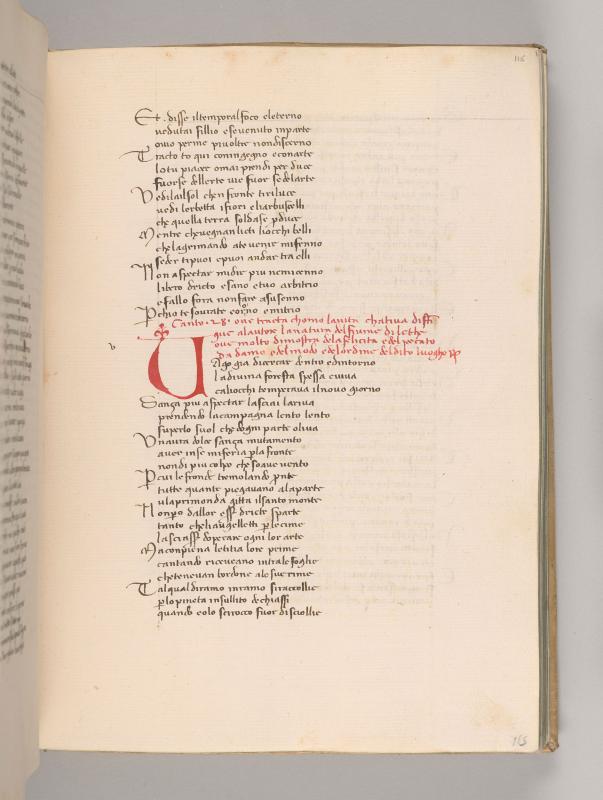 116
Et. disse iltemporal foco eleterno
veduta i fillio ese venuto inparte
ovio perme piu oltre nondiscerno
Tracto to qui coningegno econarte
lotu piacer omai prendi per duce
fuor se dellerte vie fuor sedelarte
Vedi lai sol chen fronte ti riluce
vedi lerbetta ifiori eliarbuscelli
che quella terra sol da se pduce
Mentre che vegnan lieti liocchi belli
che lagrimando ate venir mi fenno
seder ti puoi epuoi andar tra elli
Non aspectar mi dir piu ne mi cenno
libero dricto e sano e tuo arbitrio
e fallo fora non fare a suo senno
Pchio te sovra te corono e mitrio
Canto . 28 . ove tracta chomo la vita
que alautor la natura del fiume di lethe
ove molto dimostra dela felicita e del pecato
da damo e del modo e del ordine del dito luogho
v
Valgo gia di cercar dentro e dintorno
la divina foresta spessa e viva
caliocchi temperava il novo giorno
Sança piu aspectar lasciai la riva
prendendo la campagna lento lento
su per lo suol che dogni parte oliva
Un aura dolce sança mutamento
aver in se mi feria p la fronte
non di piu colpo che soave vento
Pcui le fronde tremolando pnte
tutte quante piegavano ala parte
u la prim onda gitta il santo monte
Non po dallor esser dricte sparte
tanto che li augelletti p le cime
lasciasser doperare ogni lor arte
Ma con piena letitia lore prime
cantando ricevean intra le foglie
che tenevan bordone a le sue rime
Tal qual di ramo in ramo si raccollie
p lo pineta in sullito de chiassi
quando eolo scirocco fuor disciollie
115